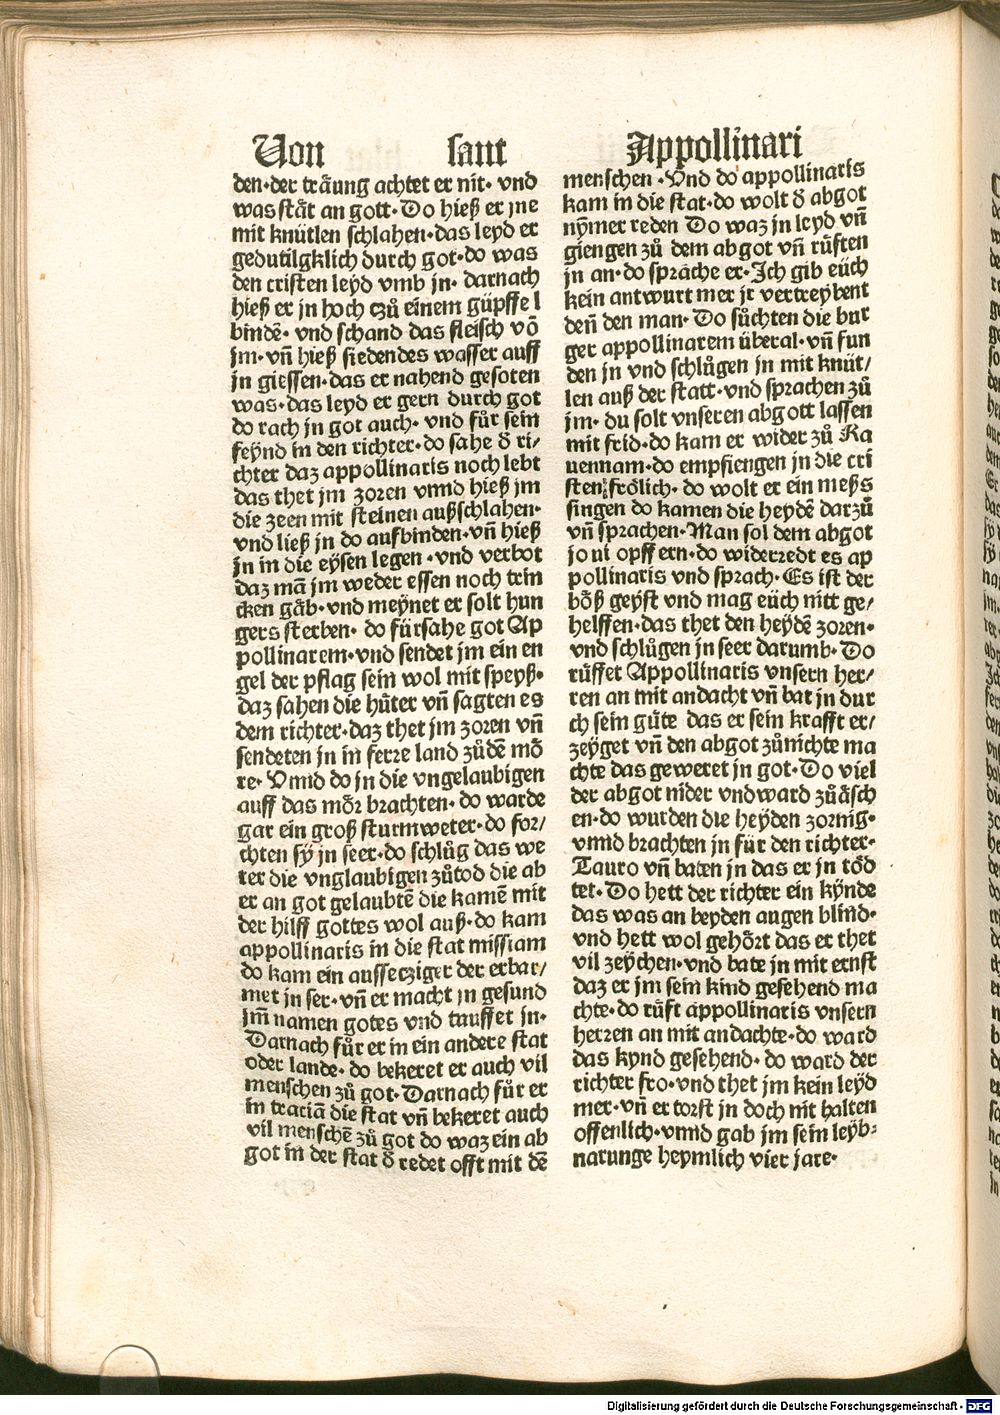 Von sant Appollinari
den·der träung achtet er nit· vnd
was stät an gott·Do hieß er jne
mit knütlen schlahen·das leyd er
gedutilgklich durch got·do was
den cristen leyd vmb jn· darnach
hieß er jn hoch czů einem güpffel
bindē· vnd schand das fleisch vō
jm·vn̄ hieß siedendes wasser auff
jn giessen·das er nahend gesoten
was·das leyd er gern durch got
do rach jn got auch· vnd fůr sein
feynd in den richter·do sahe d̄ ri/
chter daz appollinaris noch lebt
das thet jm zoren vnnd hieß jm
die zeen mit steinen außschlahen·
vnd ließ jn do aufbinden·vn̄ hieß
jn in die eysen legen ·vnd verbot
daz mā jm weder essen noch trin
cken gäb·vnd meynet er solt hun
gers sterben· do fürsahe got Ap
pollinarem·vnd sendet jm ein en
gel der pflag sein wol mit speyß·
daz sahen die hůter vn̄ sagten es
dem richter·daz thet jm zoren vn̄
sendeten jn in ferre land zůdē mö
re· Vnnd do jn die vngelaubigen
auff das mör brachten· do warde
gar ein groß sturmweter·do for/
chten sy jn seer·do schlůg das we
ter die vnglaubigen zůtod die ab
er an got gelaubtē die kamē mit
der hilff gottes wol auß·do kam
appollinaris in die stat missiam
do kam ein ausseczziger der erbar/
met jn ser·vn̄ er macht jn gesund
jm̄ namen gotes vnd tauffet jn·
Darnach fůr er in ein andere stat
oder lande· do bekeret er auch vil
menschen zů got·Darnach fůr er
in traciā die stat vn̄ bekeret auch
vil menschē zů got do waz ein ab
got in der stat d̄ redet offt mit dē
menschen ·Vnd do appollinaris
kam in die stat·do wolt d̄ abgot
nÿmer reden Do waz jn leyd vn̄
giengen zů dem abgot vn̄ růften
jn an·do spräche er·Ich gib eüch
kein antwurt mer jr vertreybent
den̄ den man· Do sůchten die bur
ger appollinarem überal·vn̄ fun
den jn vnd schlůgen jn mit knüt/
len auß der statt·vnd sprachen zů
jm· du solt vnseren abgott lassen
mit frid·do kam er wider zů Ra
uennam·do empfiengen jn die cri
sten frölich· do wolt er ein meßs
singen do kamen die heydē darzů
vn̄ sprachen·Man sol dem abgot
joui opffern·do widerredt es ap
pollinaris vnd sprach·Es ist der
böß geyst vnd mag eüch nitt ge/
helffen·das thet den heydē zoren·
vnd schlůgen jn seer darumb·Do
růffet Appollinaris vnsern her/
ren an mit andacht vn̄ bat jn dur
ch sein güte das er sein krafft er/
zeyget vn̄ den abgot zůnichte ma
chte das geweret jn got·Do viel
der abgot nider vndward zůäsch
en·do wurden die heyden zornig·
vnnd brachten jn für den richter·
Tauro vn̄ baten jn das er jn töd
tet·Do hett der richter ein kynde
das was an beyden augen blind·
vnd hett wol gehört das er thet
vil zeychen·vnd bate jn mit ernst
daz er jm sein kind gesehend ma
chte·do růft appollinaris vnsern
herren an mit andachte·do ward
das kynd gesehend· do ward der
richter fro·vnd thet jm kein leyd
mer·vn̄ er torst jn doch nit halten
offenlich·vnnd gab jm sein leyb·
narunge heymlich vier jare·
Digitalisierung gefördert durch die Deutsche Forschungsgemeinschaft - DFG